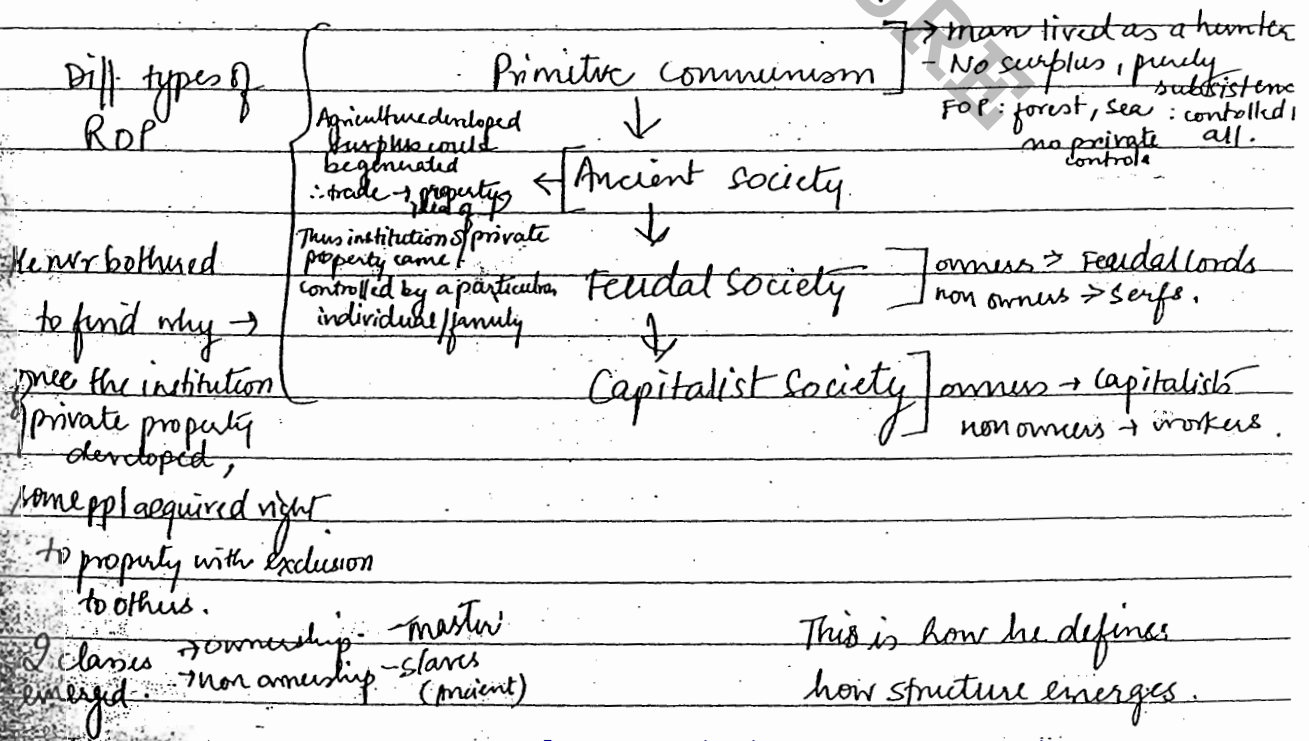 Diff. types of
ROP
Primitve Communism
→ man lived as a hunter
- No surplus, purely
subsistenc
FOP : forest, sea : controlled
no private all.
control.
↓
Agriculture developed
surplus could
be generated
∴ trade → property
idea of
← Ancient society
↓
Thus institution of private
property came /
controlled by a particular
individual/family
Feudal Society
owness → Feudal lords
non owners → Serfs.
↓
Capitalist Society
owners → Capitalists
non owners → workers.
He nvr bothered
to find why →
once the institution
of private property
developed,
some ppl acquired right
to property with exclusion
to others.
2 classes
emerged.
→ ownership - master
→ non ownership - slaves
(Ancient)
This is how he defines
how structure emerges.
URE